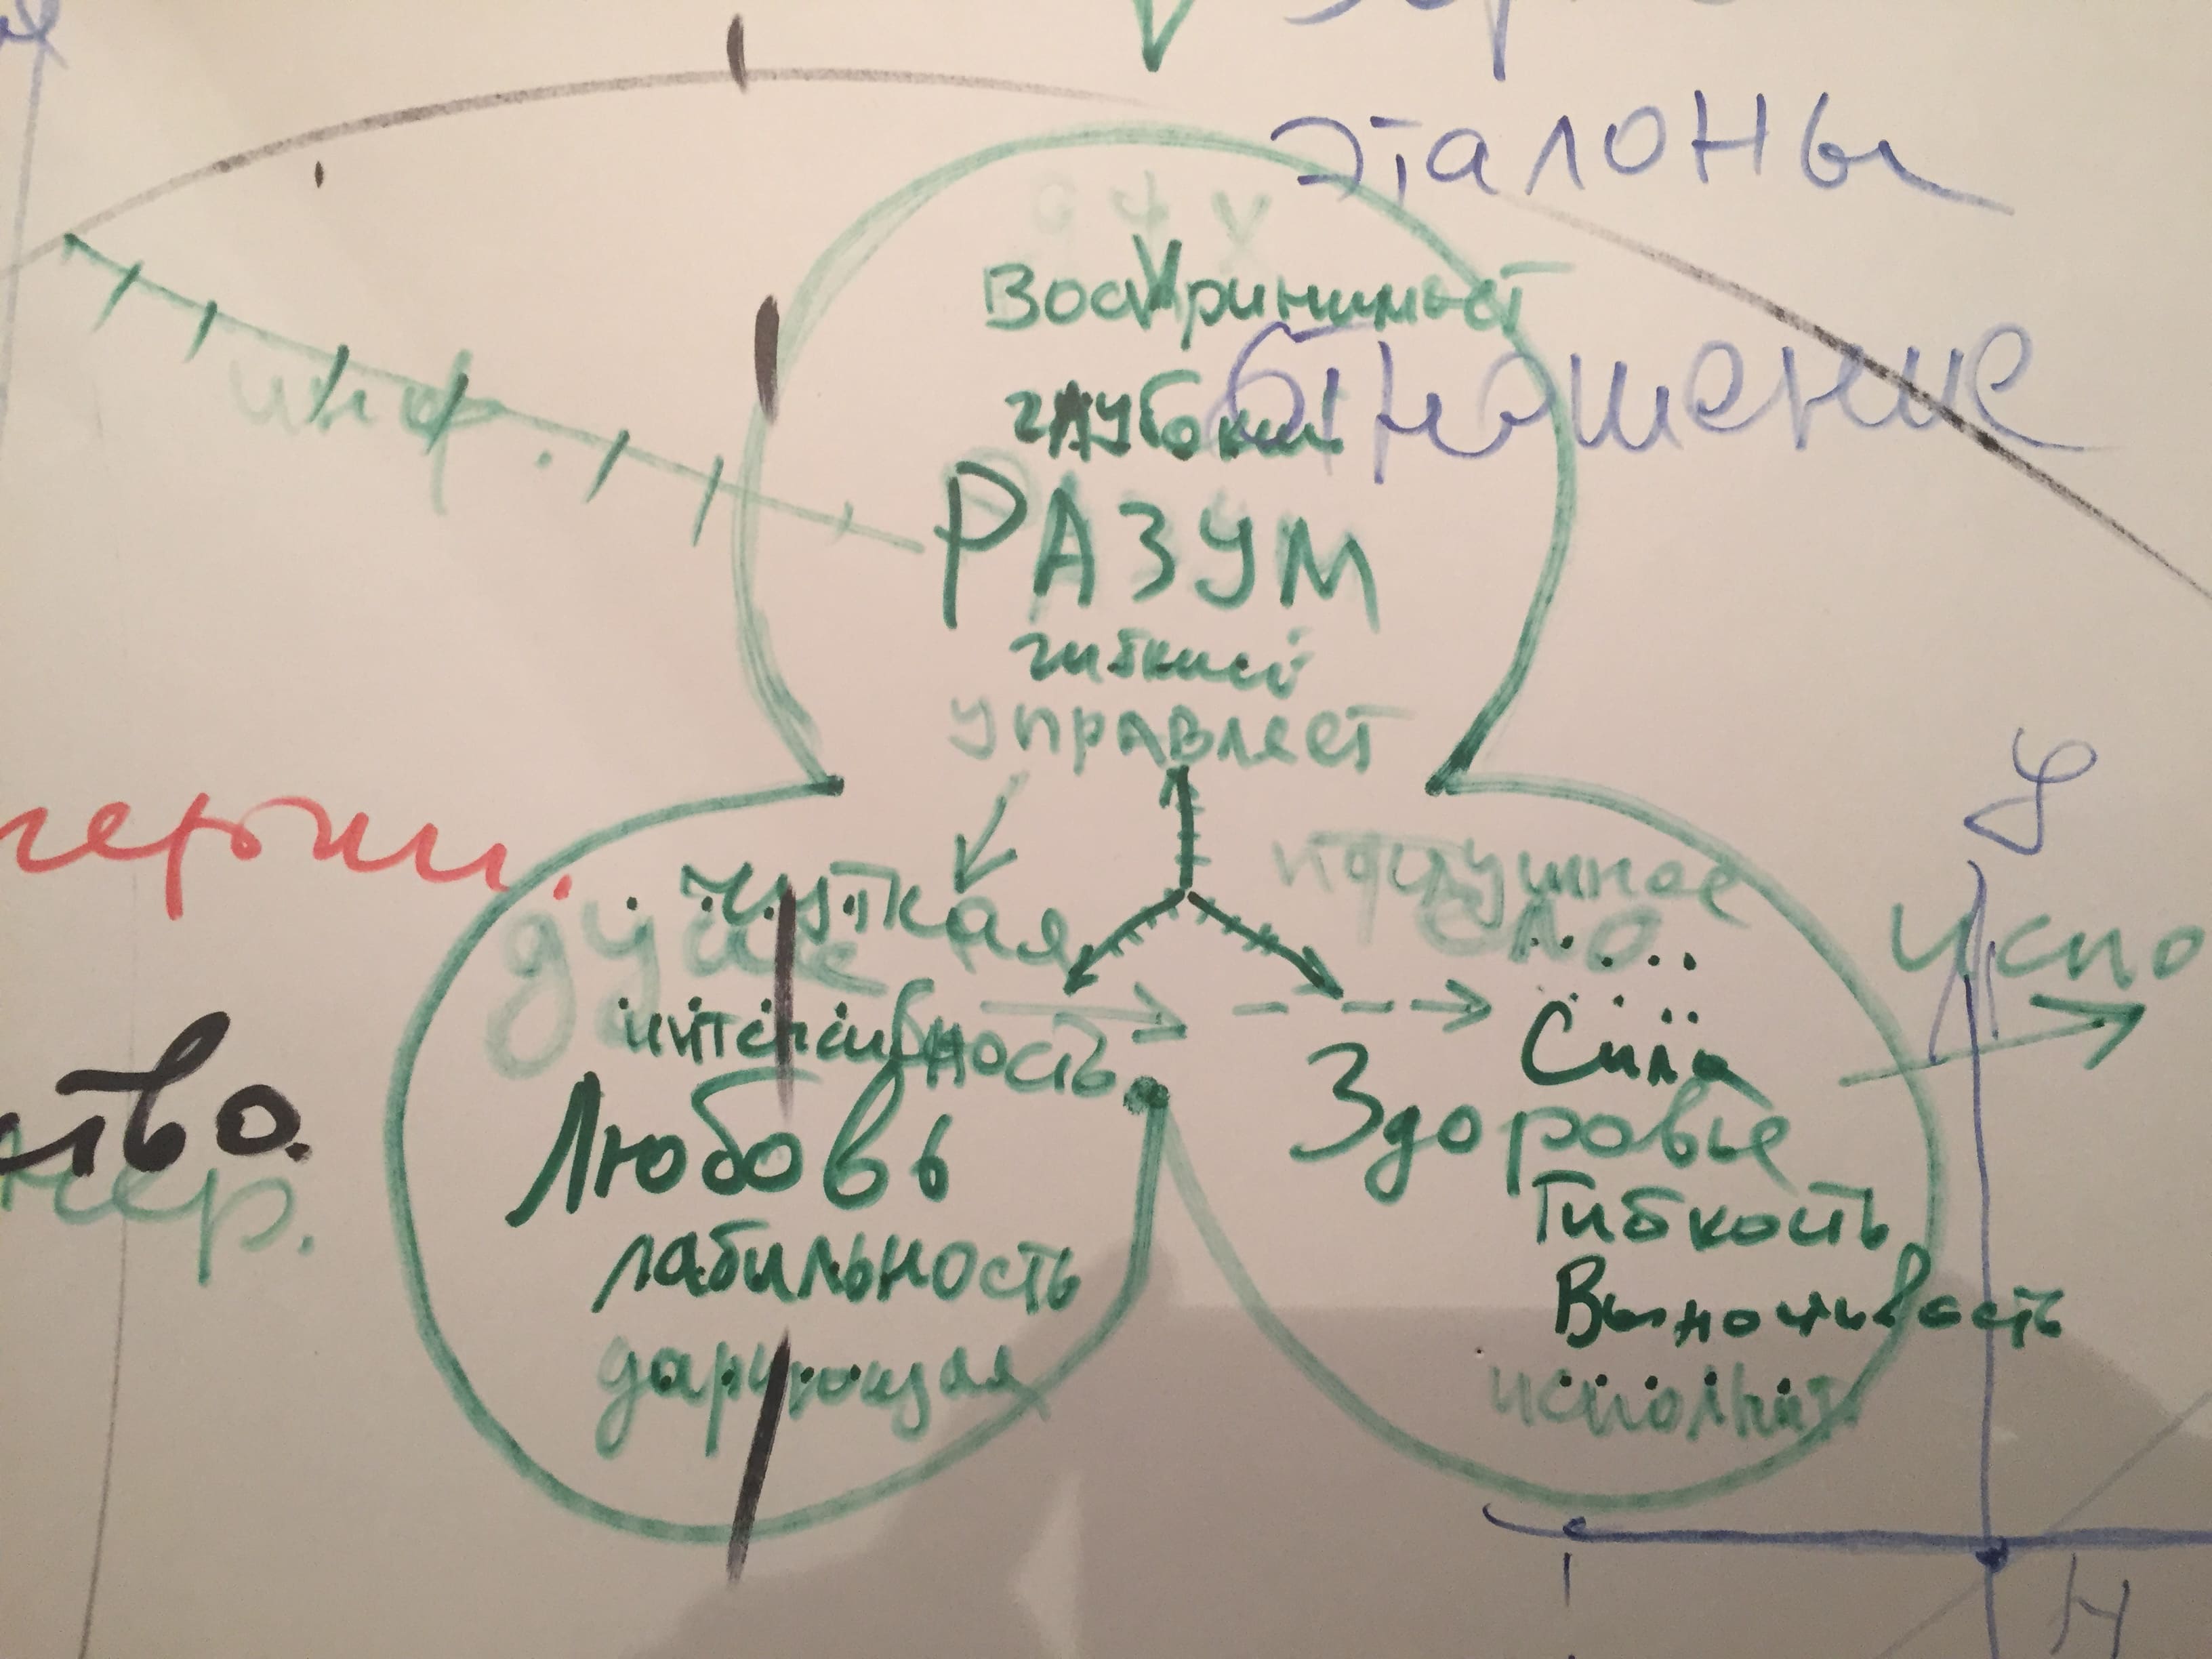 эталоны
Воспринимает
глубокий
отношение
инф.
РАЗУМ
гибкий
управляет
чуткая
послушное
душе
испо
интенсивность
Сила
Любовь
Здоровье
ство.
нер.
Гибкость
лабильность
Выносливость
дарующая
исполнит.
Н